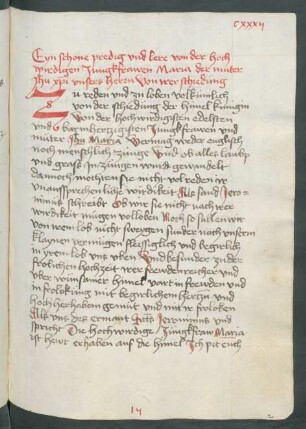 cxxxij
Eyn schone predig vnd lere von der hoch
wirdigen Jungkfrawen Maria der muter
Jhu xpi vnsers herrn von irer schiedung
Zu reden vnd zu loben volkumlich
von der schiedung der himel kungin
von der hochwirdigisten edelsten
vnd barmherczigisten Jungkfrawen vnd
muter Jhu Maria vermag weder englisch
noch menschlich zunge Vnd ob alles laub
vnd grass in zungen wurd gewandelt
dannoch mochten sie nicht vol reden ir
vnaussprechenliche wirdikeit Als sand Jero-
nimus schreibt Ob wir sie nicht nach irer
wirdikeit mugen volloben Noch so sullen wir
von irem lob nicht sweygen sunder nach vnserm
klaynen vermugen fleissiglich vnd begirlich
in irem lob vns vben Vnd besunder zu der
frolichen hochzeit irer frewdenreicher vnd
vber wunsamer himel vart in frewden vnd
in frolokung mit begirlichem herczen vnd
hocherhabem gemut vnd mit ir froloken
Als vns des ermant Sctus Jeronimus vnd
spricht Die hochwirdige Jungkfraw Maria
ist hewt erhaben auf die himel Ich pit euch